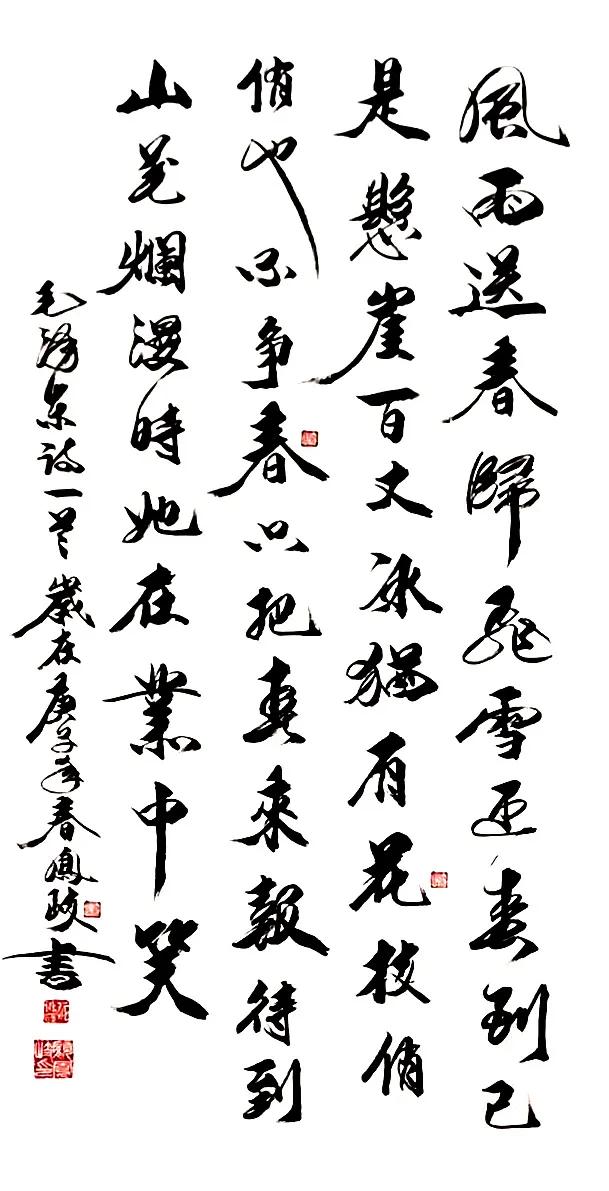 風雨送春歸飛雪迎春到已
是懸崖百丈冰猶有花枝俏
俏也不争春只把春來報待到
山花爛漫時她在叢中笑
毛澤東詩一首 歲在庚子年春鳳書